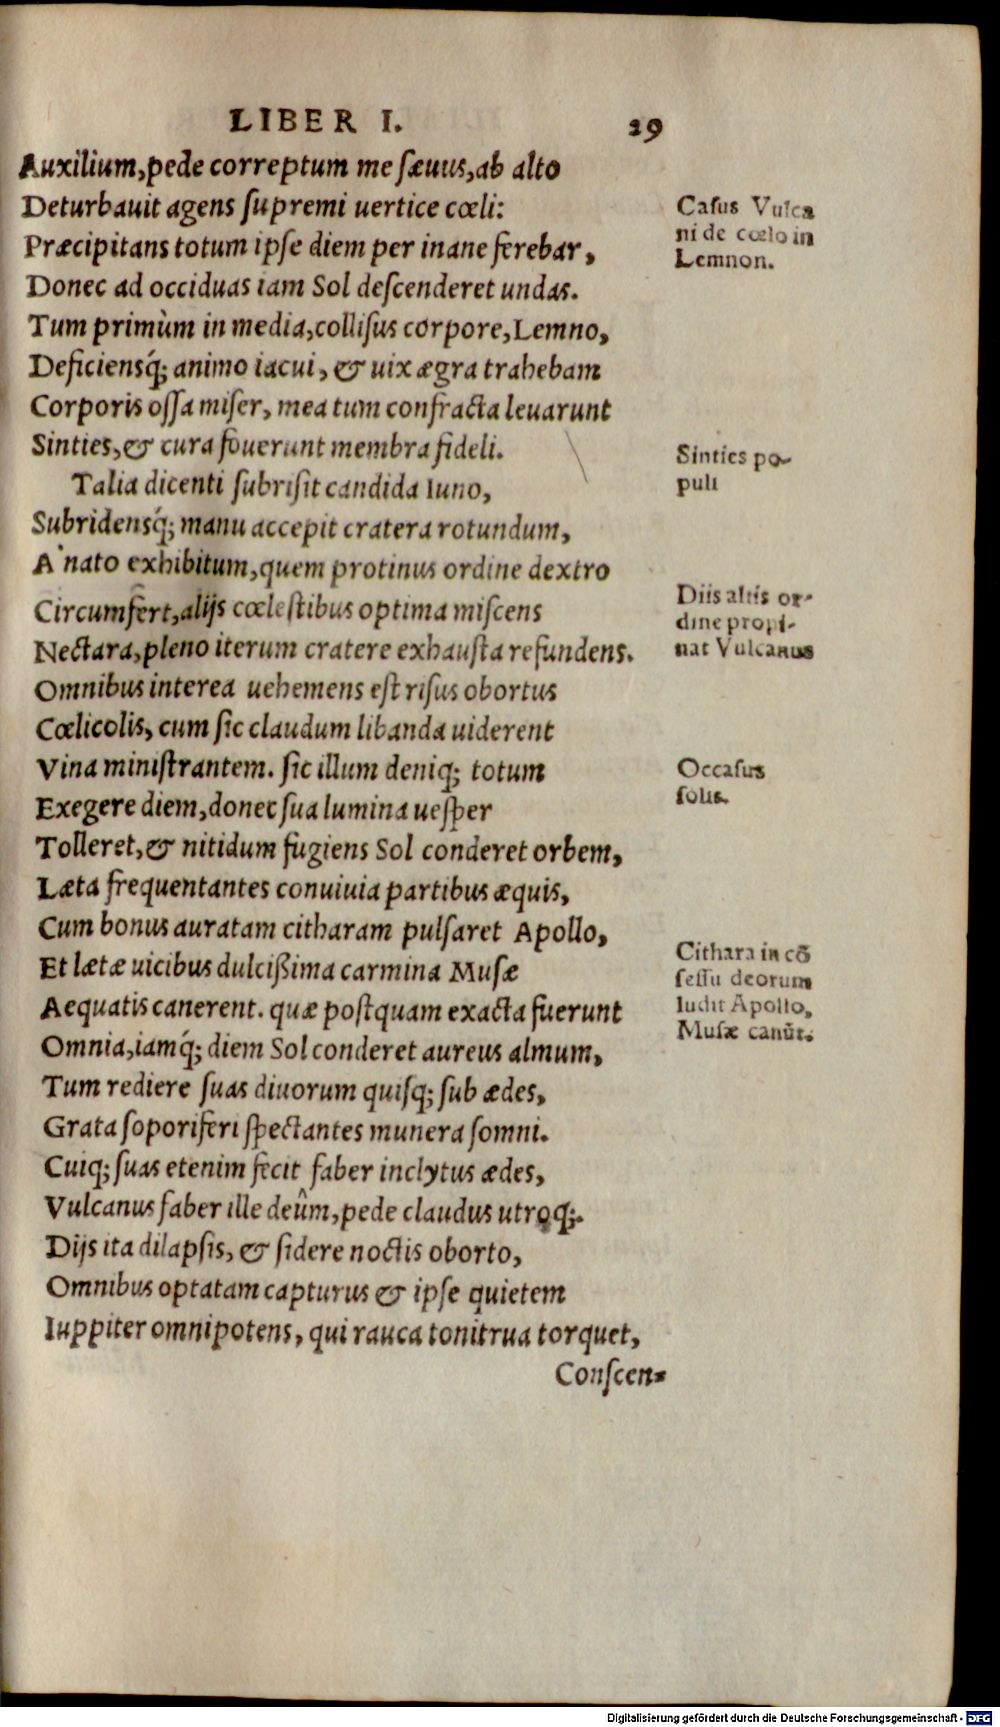 LIBER I. 29
Auxilium, pede correptum me sæuus, ab alto
Deturbauit agens supremi uertice cœli:
Præcipitans totum ipse diem per inane ferebar,
Donec ad occiduas iam Sol descenderet undas.
Tum primùm in media, collisus corpore, Lemno,
Deficiensq́; animo iacui, & uix ægra trahebam
Corporis ossa miser, mea tum confracta leuarunt
Sinties, & cura fouerunt membra fideli.
Talia dicenti subrisit candida Iuno,
Subridensq́; manu accepit cratera rotundum,
A' nato exhibitum, quem protinus ordine dextro
Circumfert, alijs cœlestibus optima miscens
Nectara, pleno iterum cratere exhausta refundens.
Omnibus interea uehemens est risus obortus
Cœlicolis, cum sic claudum libanda uiderent
Vina ministrantem. sic illum deniq; totum
Exegere diem, donec sua lumina uesper
Tolleret, & nitidum fugiens Sol conderet orbem,
Læta frequentantes conuiuia partibus æquis,
Cum bonus auratam citharam pulsaret Apollo,
Et lætæ uicibus dulcißima carmina Musæ
Aequatis canerent. quæ postquam exacta fuerunt
Omnia, iamq́; diem Sol conderet aureus almum,
Tum rediere suas diuorum quisq; sub ædes,
Grata soporiferi spectantes munera somni.
Cuiq; suas etenim fecit faber inclytus ædes,
Vulcanus faber ille deûm, pede claudus utroq;.
Dijs ita dilapsis, & sidere noctis oborto,
Omnibus optatam capturus & ipse quietem
Iuppiter omnipotens, qui rauca tonitrua torquet,
Conscen-
Casus Vulca
ni de cœlo in
Lemnon.
Sinties po-
puli
Diis aliis or-
dine propi-
nat Vulcanus
Occasus
solis.
Cithara in cō
sessu deorum
ludit Apollo,
Musæ canūt.
Digitalisierung gefördert durch die Deutsche Forschungsgemeinschaft - DFG